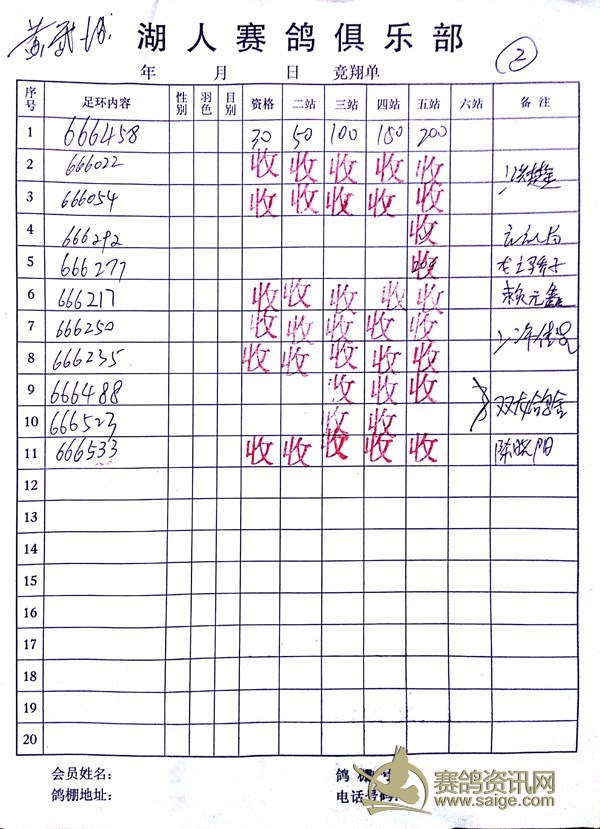 湖人赛鸽俱乐部
②
年 月 日 竞翔单
序号 足环内容 性别 羽色 目别 资格 二站 三站 四站 五站 六站 备注
1 666458 30 50 100 150 200
2 666022 收 收 收 收 收
3 666054 收 收 收 收 收
4 666292 收
5 666277 收
6 666217 收 收 收 收 收 赖元鑫
7 666250 收 收 收 收 收
8 666235 收 收 收 收 收
9 666488 收 收 收
10 666523 收 收
11 666533 收 收 收 收 收 陈晓阳
12
13
14
15
16
17
18
19
20
会员姓名： 鸽棚号
鸽棚地址： 电话号码：
赛鸽资讯网
www.saige.com